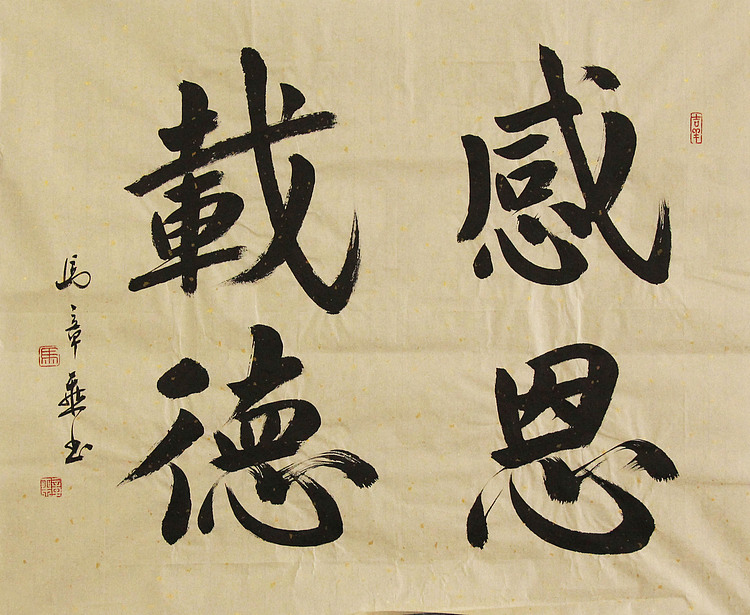 感恩
載德
馬章乘书